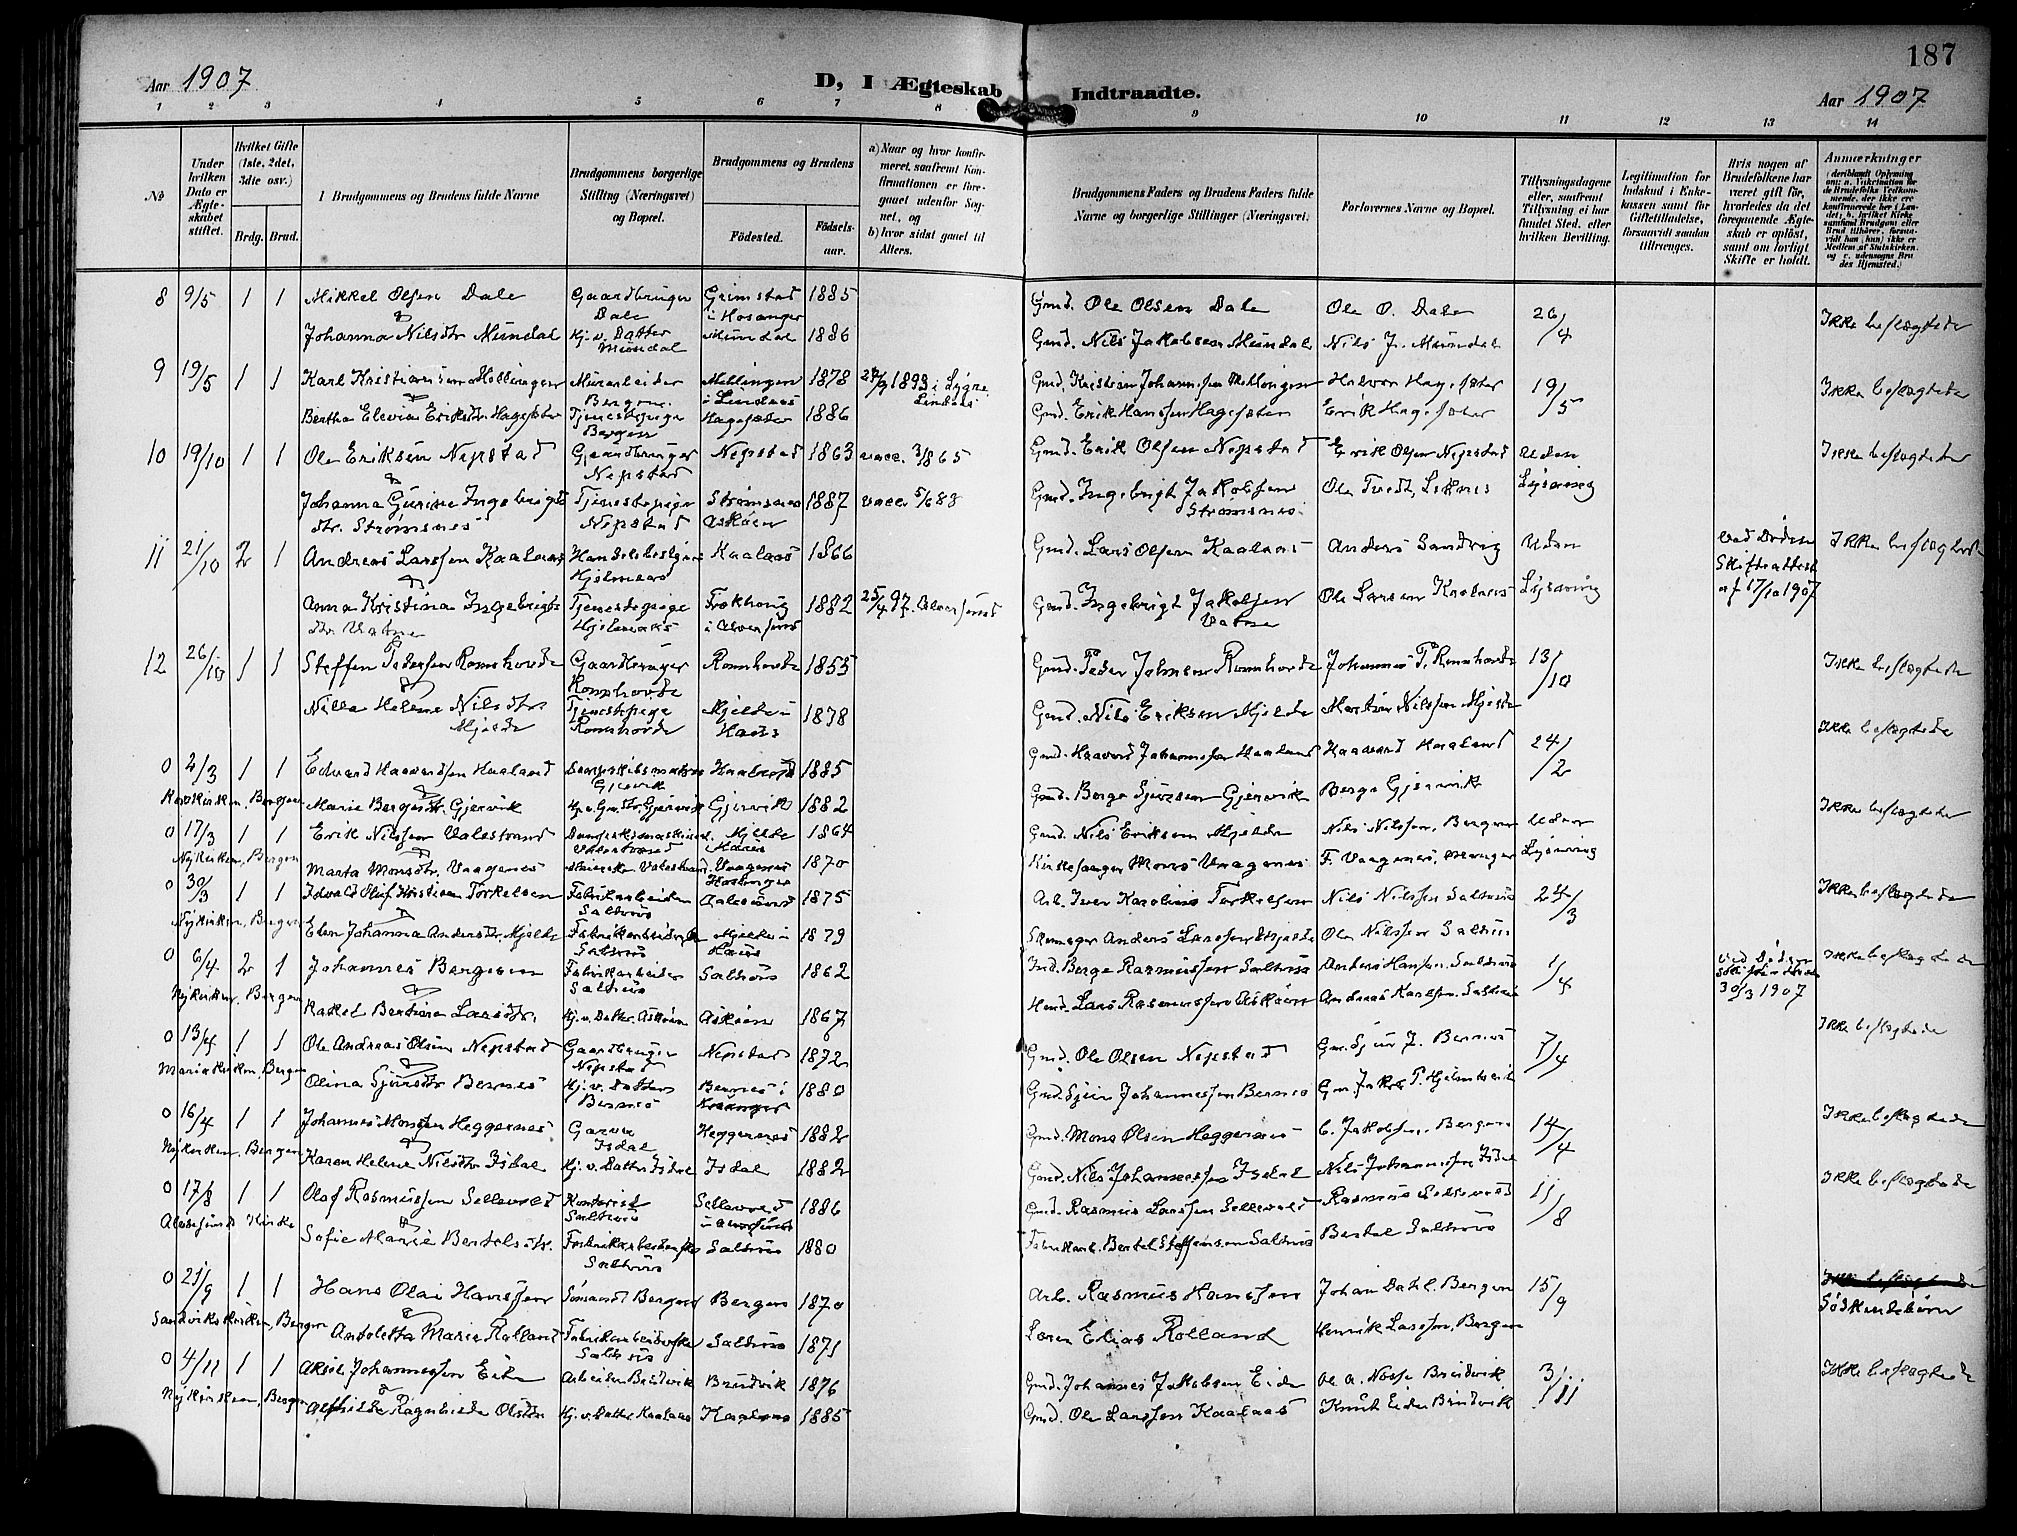 187
Aar 1907 D, I Ægteskab Indtraadte. Aar 1907
1 2 3 4 5 6 7 8 9 10 11 12 13 14
No
Under hvilken Dato er Ægteskabet stiftet.
Hvilket Gifte (1ste, 2det, 3die osv.)
Brdg. Brud.
1 Brudgommens og Brudens fulde Navne
Brudgommens borgerlige Stilling (Næringsvei) og Bopæl.
Brudgommens og Brudens
Födested. Födsels-aar.
a) Naar og hvor konfirmeret, saafremt Konfirmationen er foregaaet udenfor Sognet, og
b) hvor sidst gaaet til Alters.
Brudgommens Faders og Brudens Faders fulde Navne og borgerlige Stillinger (Næringsvei).
Forlovernes Navne og Bopæl.
Tillysningsdagene eller, saafremt Tillysning ei har fundet Sted, efter hvilken Bevilling.
Legitimation for Indskud i Enkekassen samt for Giftetilladelse, forsaavidt saadan tiltrænges.
Hvis nogen af Brudefolkene har været gift för, hvorledes da det foregaaende Ægteskab er oplöst, samt om lovligt Skifte er holdt.
Anmærkninger
8 9/5 1 1 Mikkel Olsen Dale Gaardbruger Dale Grimstad i Hosanger 1885 Gmd. Ole Olsen Dale Ole O. Dale 26/4 Ikke beslægtede
Johanna Nilsdtr Mundal Hj. v. Datter Mundal Mundal 1886 Gmd. Nils Jakobsen Mundal Nils J. Mundal
9 19/5 1 1 Karl Kristiansen Mellingen Murarbeider Bergen. Mellingen i Lindaas 1878 Lygre Lindaas Gmd. Kristian Johannesen Mellingen Halvor Hagesæter 19/5 Ikke beslægtede
Bertha Elevia Eriksdtr. Hagesæter Tjenestepige Bergen Hagesæter 1886 Gmd. Erik Hanssen Hagesæter Erik Hagesæter
10 19/10 1 1 Ole Eriksen Nepstad Gaardbruger Nepstad Nepstad 1863 vacc. 3/8 65 Gmd. Erik Olsen Nepstad Erik Olsen Nepstad Uden Lysning Ikke beslægtede
Johanna Gurine Ingebrigts dtr. Strømsnes Tjenestepige Nepstad Strømsnes Askøen 1887 vacc. 5/6 88 Gmd. Ingebrigt Jakobsen Strømsnes. Ole Tvedt, Seknes
11 21/10 2 1 Andreas Larssen Kaalaas Handelsbestyrer Hjelmaas Kaalaas 1866 Gmd. Lars Olsen Kaalaas Anders Sandvig Uden Lysning ved Döden Skifteattest af 17/10 1907 Ikke beslægtede
Anna Kristina Ingebrigts dtr. Vatne Tjenestepige Hjelmaas i Alversund 1882 25/4 97. Alversund Gmd. Ingebrigt Jakobsen Vatne Ole Larsen Kaalaas
12 26/10 1 1 Steffen Pedersen Romshovde Gaardbruger Romshovde Romshovde 1855 Gmd. Peder Johnsen Romshovde Johannes P. Romshovde 13/10 Ikke beslægtede
Nilla Helene Nilsdtr Mjelde Tjenestepige Romshovde Mjelde i Haus 1878 Gmd. Nils Eriksen Mjelde Martin Nilssen Mjelde
0 2/3 1 1 Edvard Haavardsen Haaland Dampskibsmatros Gjervik Haaland 1885 Gmd. Haavard Johannessen Haaland Haavard Haaland 24/2 Ikke beslægtede
Korskirken, Bergen Marie Bergesdtr. Gjervik Hj. v. Gm. Dtr. Gjervik Gjervik 1882 Gmd. Berge Sjursen Gjervik Berge Gjervik
0 17/3 1 1 Erik Nilssen Valestrand Valestrand Mjelde i Haus 1864 Gmd. Nils Eriksen Mjelde Nils Nilssen, Bergen uden Lysning Ikke beslægtede
Nykirken, Bergen Marta Monsdtr. Vaagenes Valestrand Vaagenes Hosanger 1870 Kirkesanger Mons Vaagenes F. Vaagenes, Manger
0 30/3 1 1 Edvald Oluf Kristian Torkelsen Fabrikarbeider Salhus Aalesund 1875 Arb. Iver Karolius Torkelsen Nils Nilssen Salhus 24/3 Ikke beslægtede
Nykirken, Bergen Elen Johanna Andersdtr. Mjelde Fabrikarbeiderske Salhus Mjelde i Haus 1879 Skomager Anders Larssen Mjelde Ole Nilssen Salhus
0 6/4 2 1 Johannes Bergesen Fabrikarbeider Salhus Salhus 1862 Ind. Berge Rasmussen Salhus Anders Hansen Salhus 1/4 ved Döden 30/3 1907 Ikke beslægtede
Nykirken, Bergen Rakel Bertine Larsdtr. Hj. v. Datter. Askøen Askøen 1867 Hmd. Lars Rasmussen Askøen Andreas Karlsen, Salhus
0 13/4 1 1 Ole Andreas Olsen Nepstad Gaardbruger Nepstad Nepstad 1872 Gmd. Ole Olsen Nepstad Gm. Sjur J. Bernes 7/4 Ikke beslægtede
Mariakirken, Bergen Olina Sjursdtr Bernes Hj. v. Datter Bernes Bernes i 1880 Gmd. Sjur Johannessen Bernes Gm. Jakob T. Hjelmtveit
0 16/4 1 1 Johannes Monsen Heggernes Garver Isdal Heggernes 1882 Gmd. Mons Olsen Heggernes C. Jakobsen, Bergen 14/4 Ikke beslægtede
Nykirken, Bergen Karen Helene Nilsdtr Isdal Hj. v. Datter Isdal Isdal 1882 Gmd. Nils Johannessen Isdal Nils Johannessen Isdal
0 17/8 1 1 Olaf Rasmussen Sellevold Kontorist Salhus Sellevold i Alversund 1886 Gmd. Rasmus Larssen Sellevold Rasmus Sellevold 11/8 Ikke beslægtede
Alversund Kirke Sofie Marie Bertelsdtr. Fabrikarbeiderske Salhus Salhus 1880 Fabrikarb. Bertel Steffensen Salhus Bertel Salhus
0 21/9 1 1 Hans Olai Hanssen Sömand Bergen Bergen 1870 Arb. Rasmus Hanssen Johan Dahl, Bergen 15/9 Ikke beslægtede Södskendebörn
Sandvikskirken, Bergen Antoletta Marie Rolland Fabrikarbeiderske Salhus Salhus 1871 Lærer Elias Rolland Henrik Larssen, Bergen
0 4/11 1 1 Aksel Johannessen Eide Arbeider Brudvik Brudvik 1876 Gmd. Johannes Jakobsen Eide Ol. A. Nesse Brudvik 3/11 Ikke beslægtede
Nykirken, Bergen Alfhilde Ragnhilde Olsdtr Hj. v. Datter Kaalaas Kaalaas 1885 Gmd. Ole Larssen Kaalaas Knut Eide Brudvik